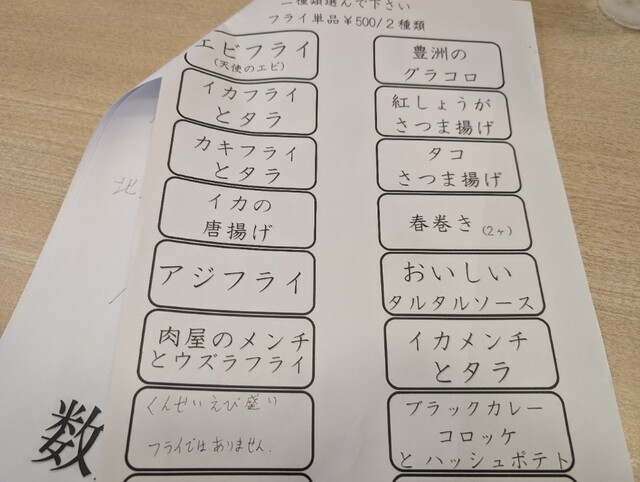 二種類選んで下さい
フライ単品￥500/2種類
エビフライ
(天使のエビ)
イカフライ
とタラ
カキフライ
とタラ
イカの
唐揚げ
アジフライ
肉屋のメンチ
とウズラフライ
くんせいえび盛り
フライではありません.
豊洲の
グラコロ
紅しょうが
さつま揚げ
タコ
さつま揚げ
春巻き(2ヶ)
おいしい
タルタルソース
イカメンチ
とタラ
ブラックカレー
コロッケ
とハッシュポテト
北
数